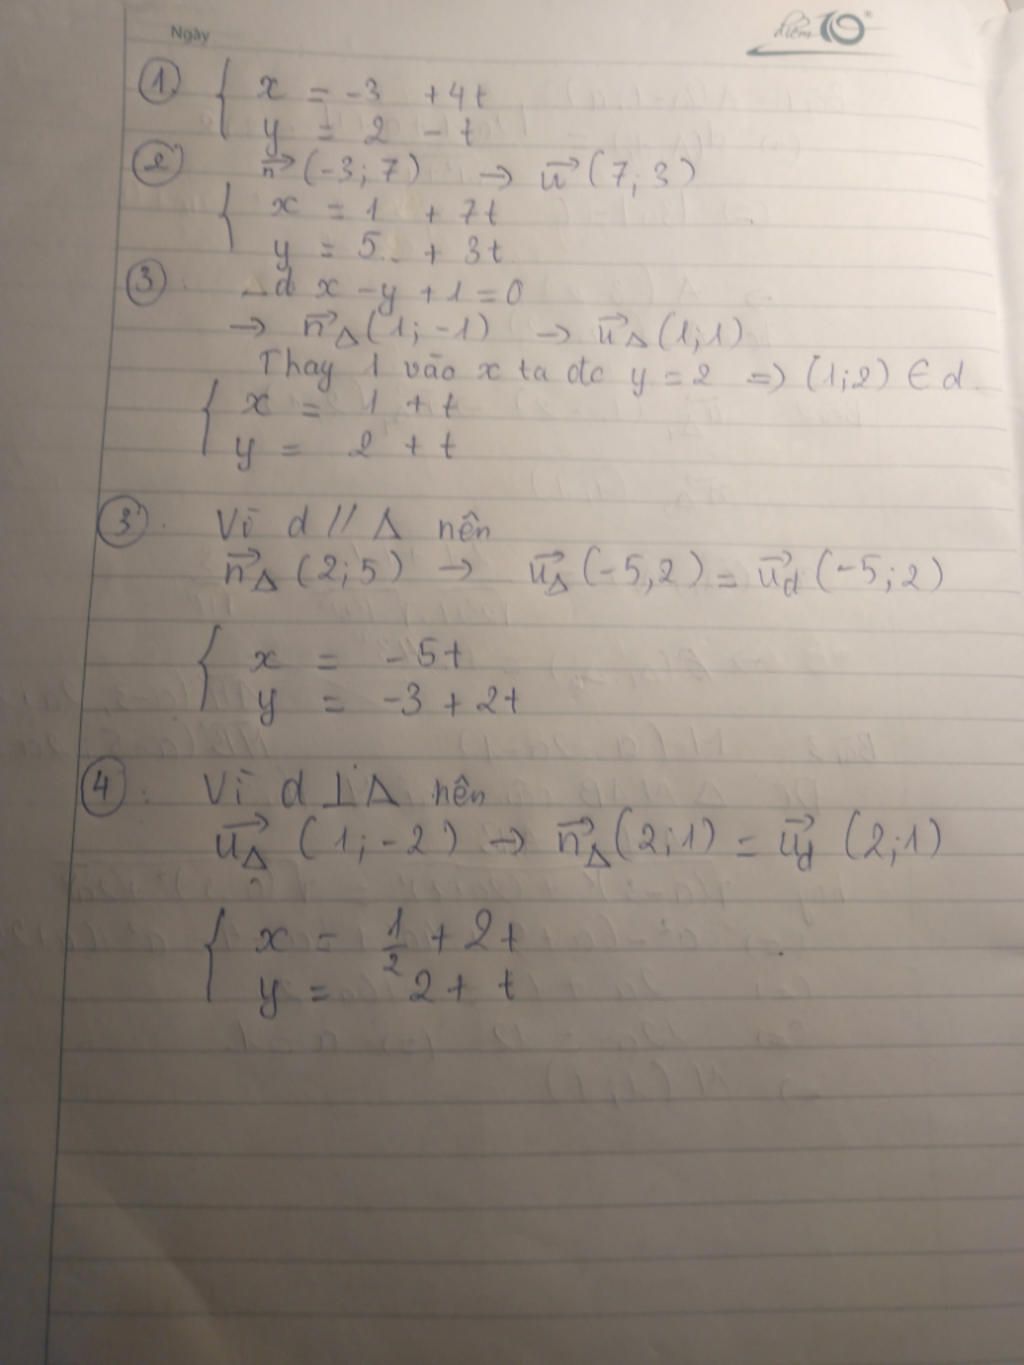 Ngày
điểm 10
① { x = -3 + 4t
y = 2 - t
② n→ (-3; 7) → u→ (7; 3)
{ x = 1 + 7t
y = 5 + 3t
③ d x - y + 1 = 0
→ n→Δ (1; -1) → u→Δ (1; 1)
Thay 1 vào x ta đc y = 2 => (1; 2) ∈ d
{ x = 1 + t
y = 2 + t
③. Vì d // Δ nên
n→Δ (2; 5) → u→Δ (-5, 2) = u→d (-5; 2)
{ x = -5t
y = -3 + 2t
④. Vì d ⊥ Δ nên
u→Δ (1; -2) → n→Δ (2; 1) = u→d (2; 1)
{ x = 1/2 + 2t
y = 2 + t